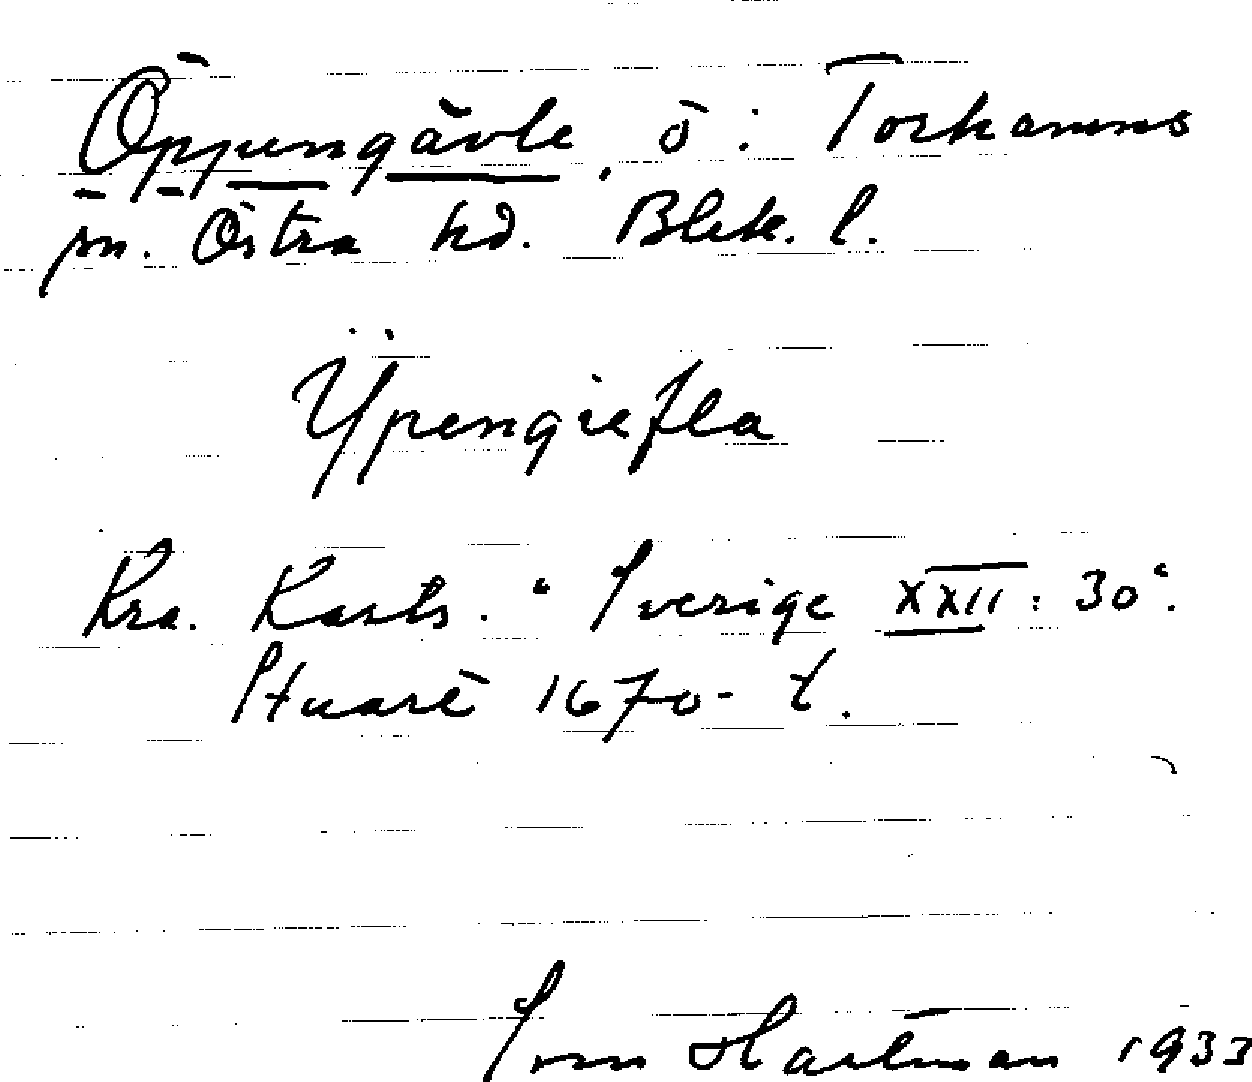 Öppungävle, ö: Torhamns
sn. Östra hd. Blek. l.
Ÿpengiefla
Kra. Kartv. "Sverige XXII: 30".
Stuart 1670-t.
Sven Hartman 1933